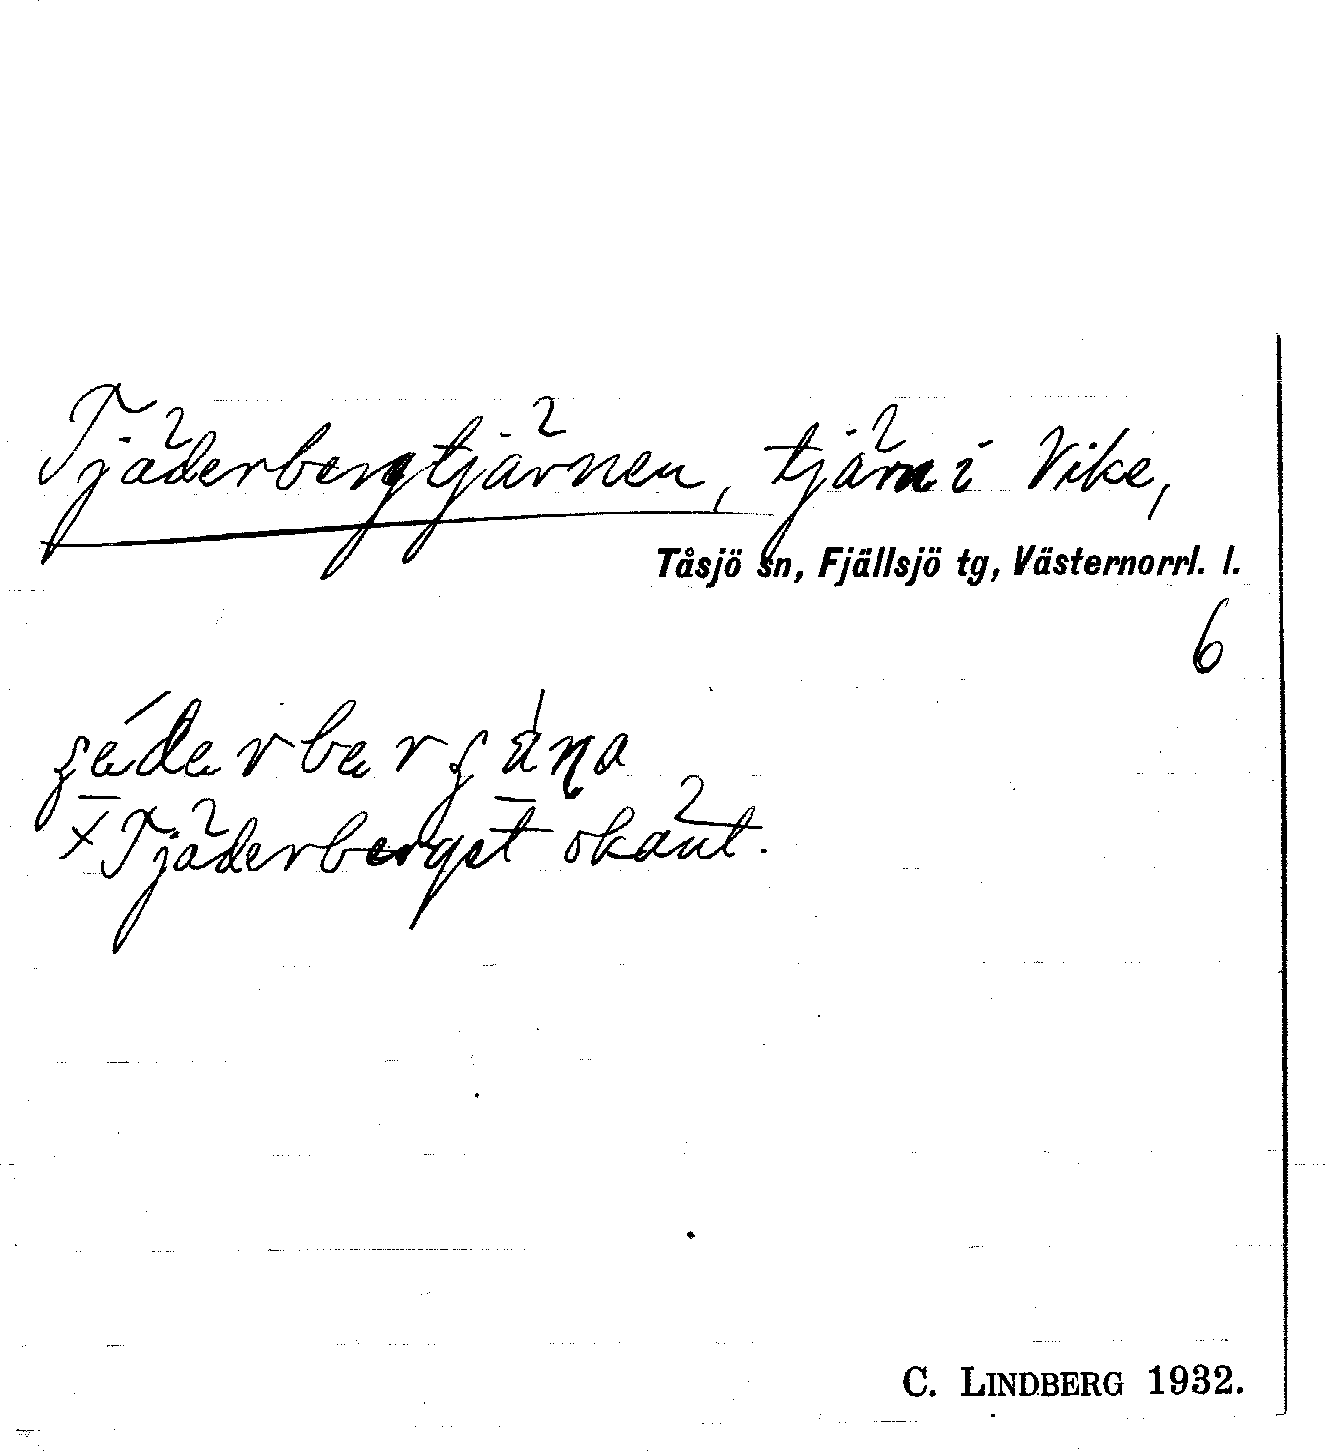 Tjäderbergtjärnen, tjärn i Vike,
Tåsjö sn, Fjällsjö tg, Västernorrl. l.
6
x Tjäderberget okänt.
C. LINDBERG 1932.